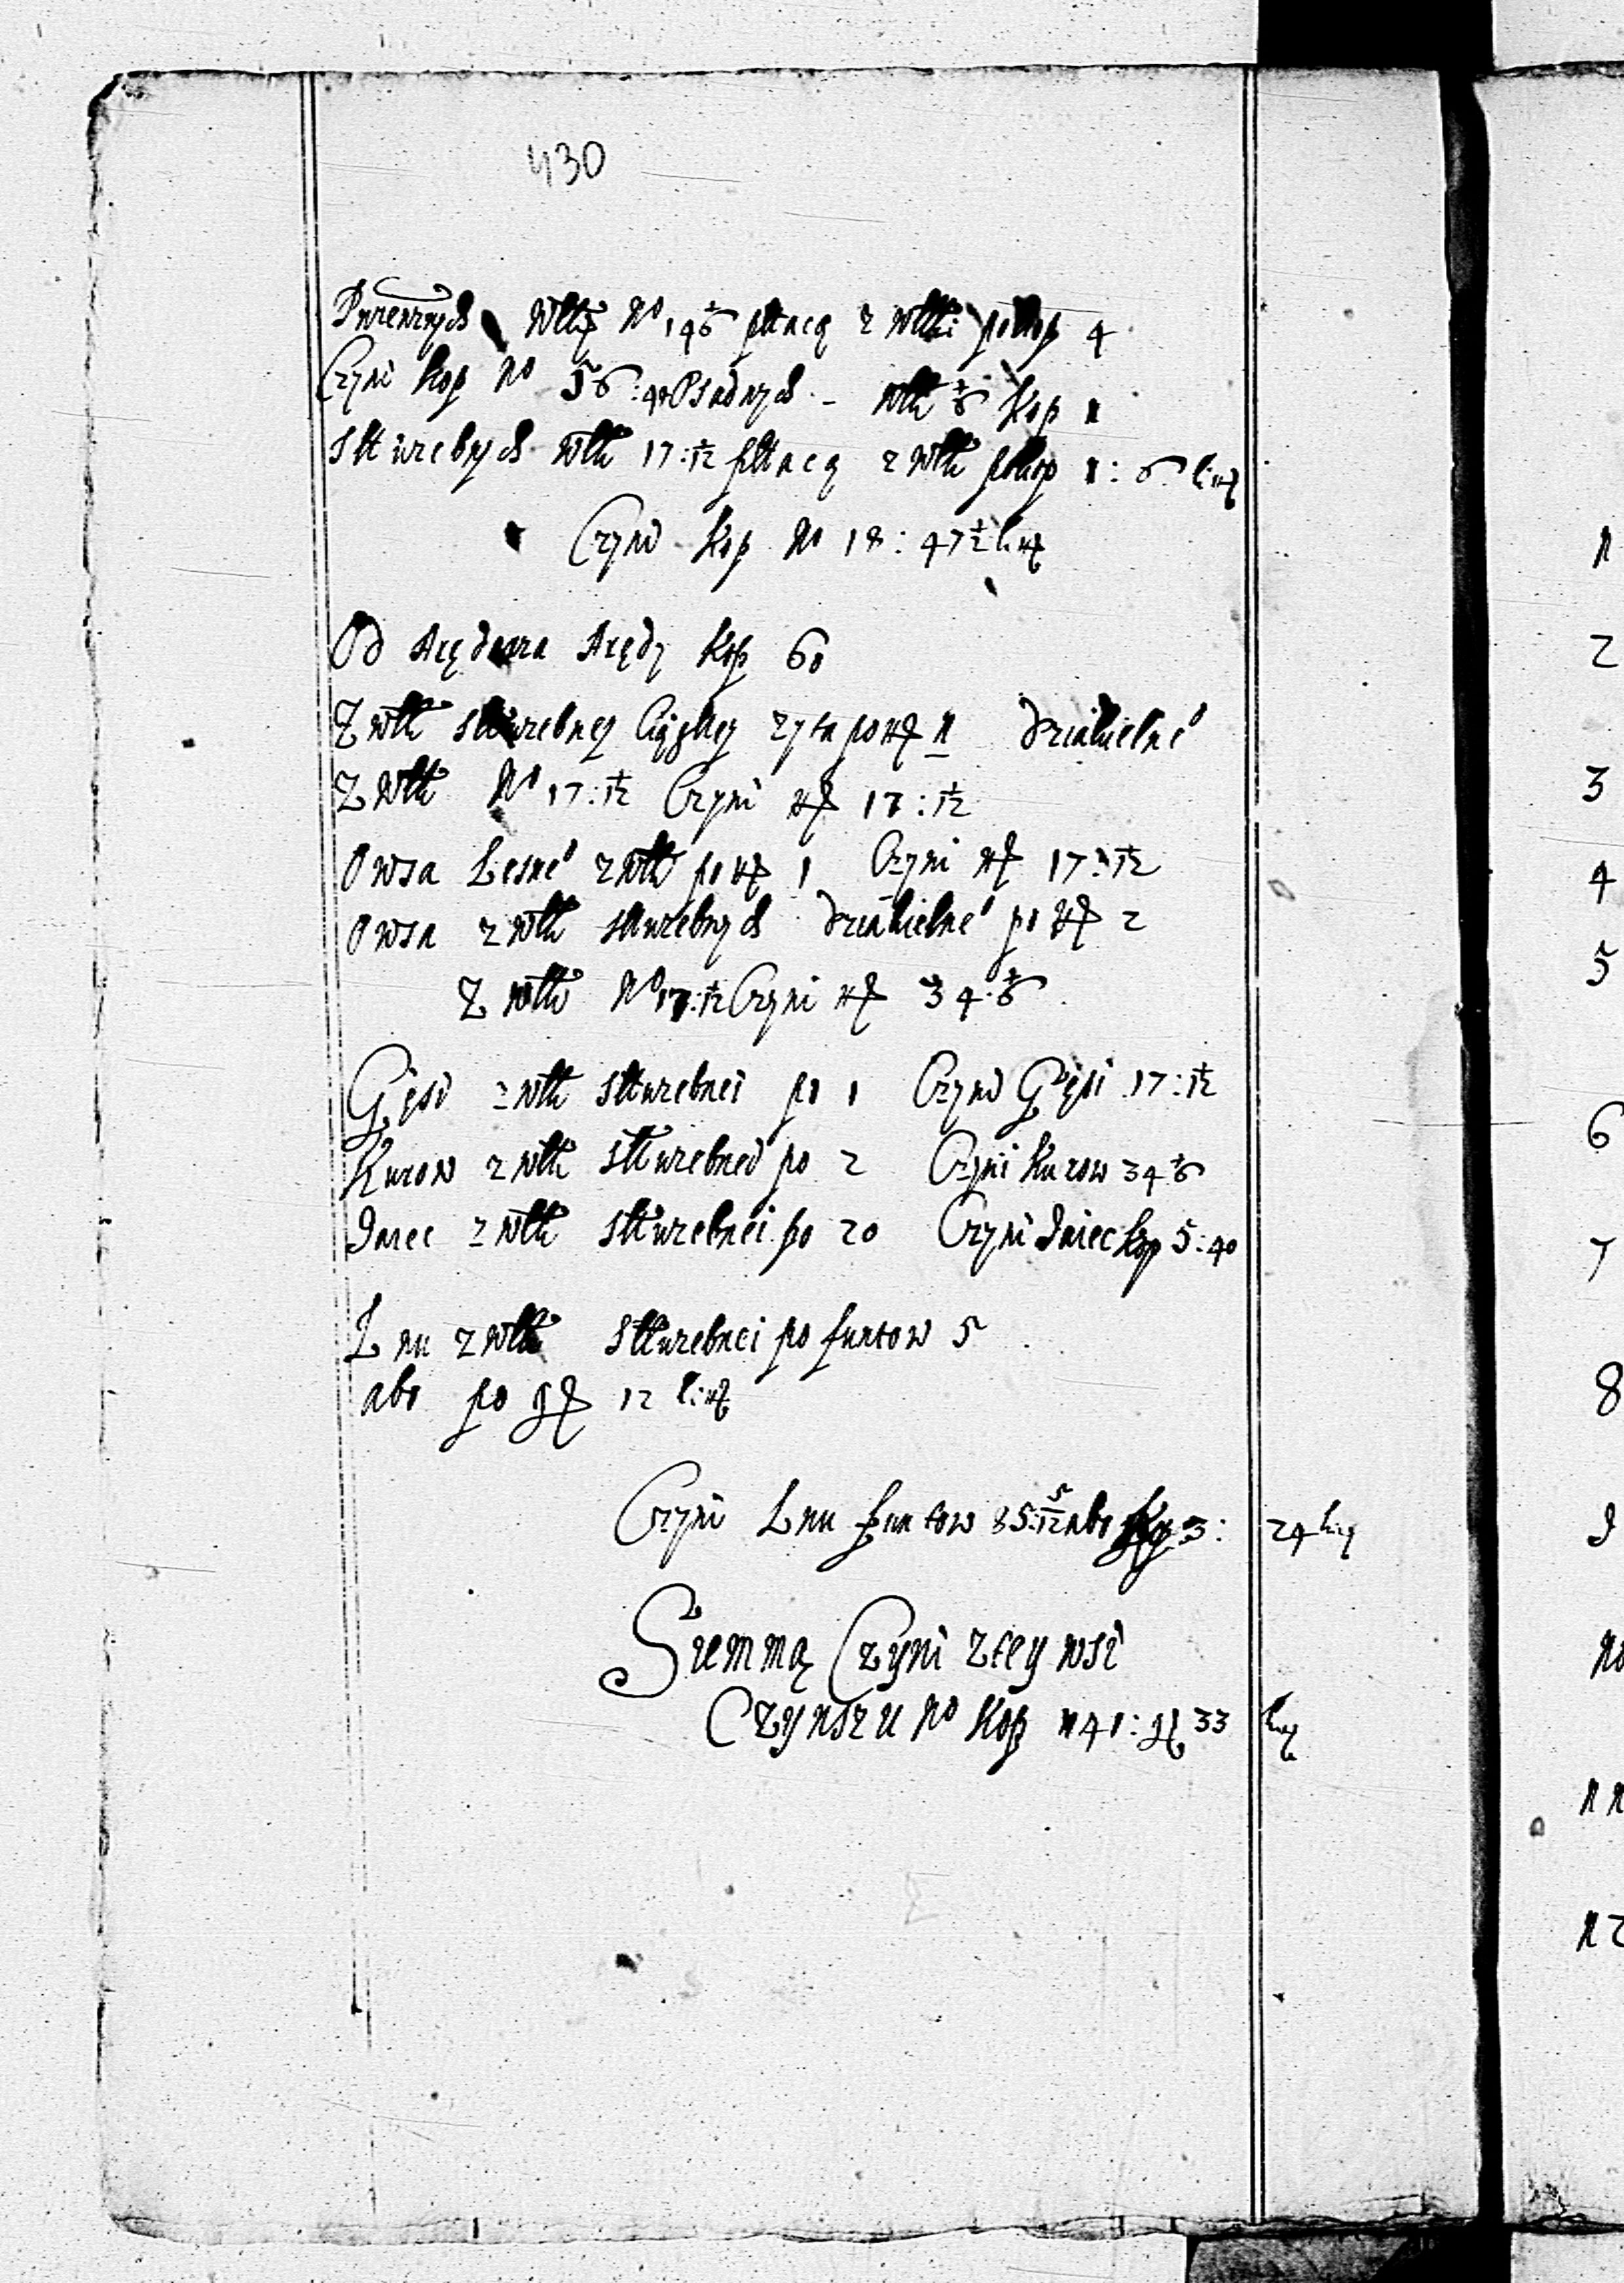 430
Puszcznych Włok No 14 1/6 płacą z włoki po kop 4
Czyni kop No 56:40 Osadnych - włok 1/6 kop 1
Służebnych włok 17:1/12 płacą z włok po kop 1: 6 lit:
Czyni kop No 18: 47 1/2 lit
Od Arędarza Arędy kop 60
Z włok służebney Ciągłey zyta po 1 dziakielne
Z włok No 17:1/12 Czyni 17:1/12
Owsa Lesne z włok po 1 Czyni 17:1/12
Owsa z włok służebnych dziakielne po 2
Z włok No 17:1/12 Czyni 34:1/6
Gęsi z włok służebnei po 1 Czyni Gęsi 17:1/12
Kurow z włok służebnei po 2 Czyni Kurow 34 1/6
Jaiec z włok służebnei po 20 Czyni Jaiec kop 5:40
Lnu z włok służebnei po funtow 5
abo po g 12 lit
Czyni Lnu funtow 85:5/12 abo kop 3: 24 lit
Summą Czyni z tey wsi
Czynszu No kop 141: g 33 lit
1
2
3
4
5
6
7
8
9
10
11
12